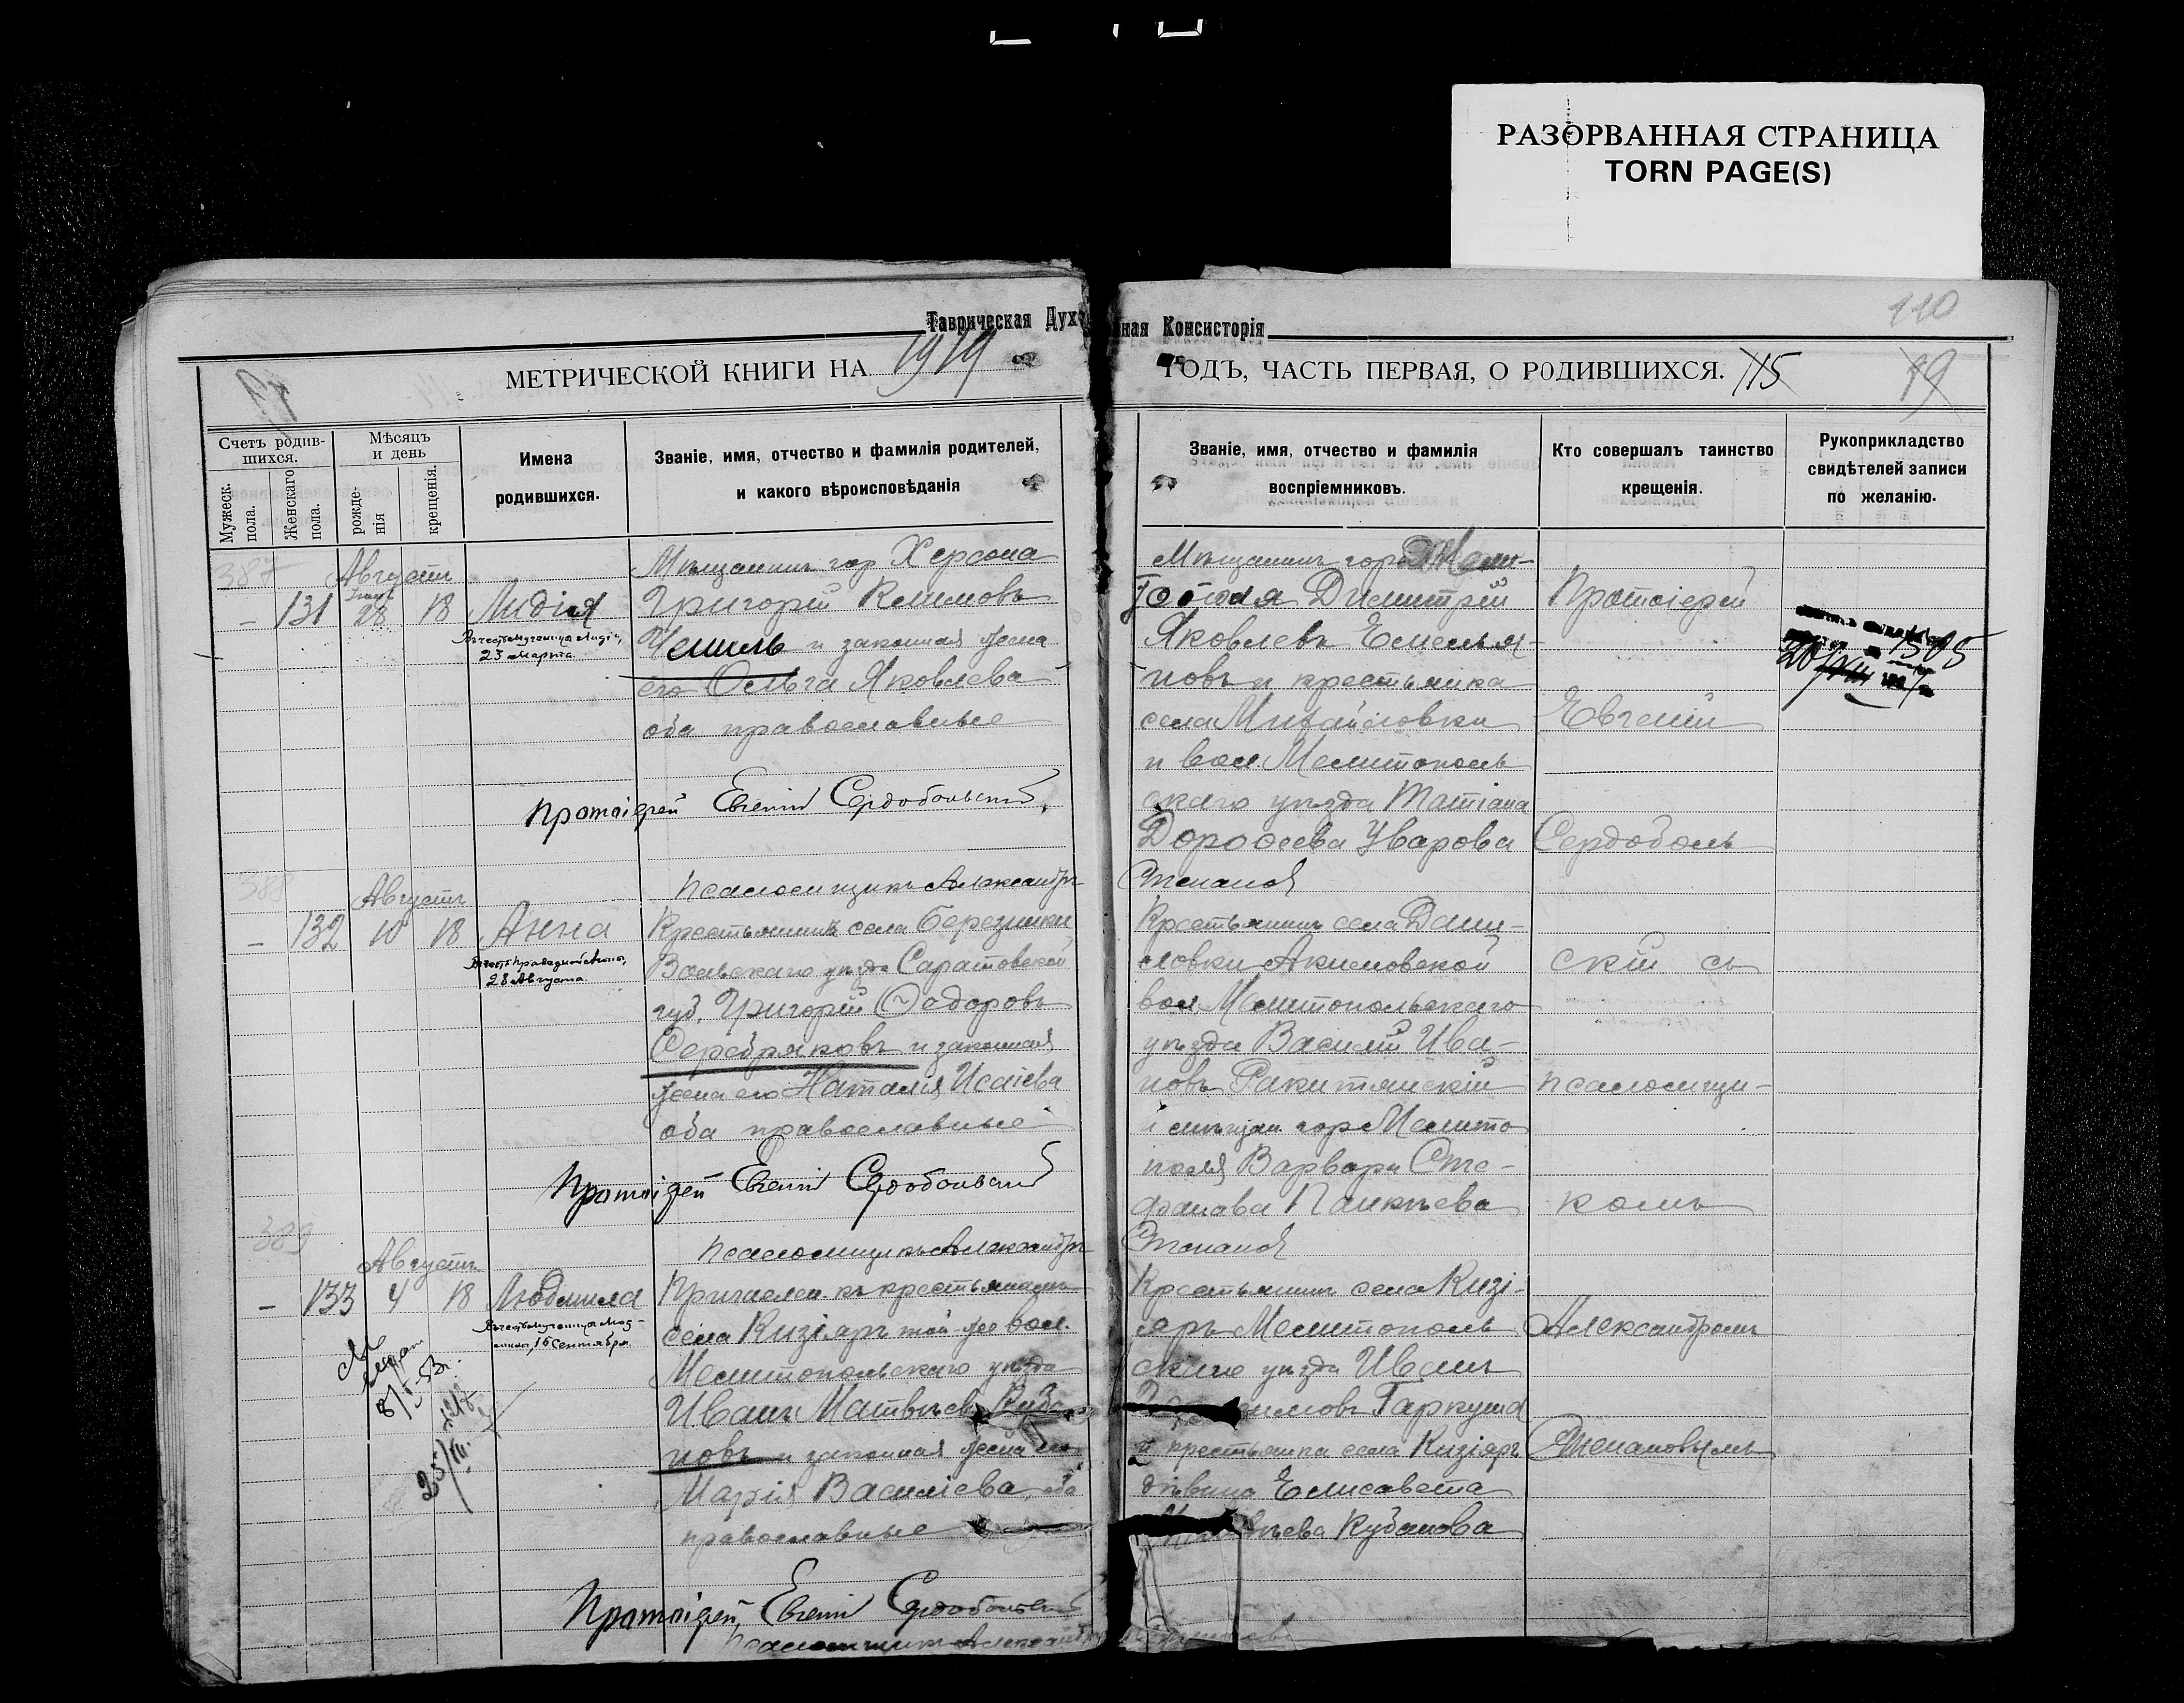 РАЗОРВАННАЯ СТРАНИЦА
TORN PAGE(S)
110
Таврическая Духовная Консисторія
МЕТРИЧЕСКОЙ КНИГИ НА 1919
ГОДЪ, ЧАСТЬ ПЕРВАЯ, О РОДИВШИХСЯ. 115
Счетъ родив-
шихся.
Мужеск.
пола.
Женскаго
пола.
Мѣсяцъ
и день
рожде-
нія
крещенія.
Имена
родившихся.
Званіе, имя, отчество и фамилія родителей,
и какого вѣроисповѣданія
Званіе, имя, отчество и фамилія
воспріемниковъ.
Кто совершалъ таинство
крещенія.
Рукоприкладство
свидѣтелей записи
по желанію.
387
Августъ
– 131 28 18 Лидія
23 марта
Мѣщанинъ гор Херсона
Григорій Климовъ
и законная жена
его Ольга Яковлева
оба православные
Протоіерей Евгеній Сердобольскій
Псаломщикъ Александръ Степановъ
Мѣщанинъ гор Мели-
тополя Димитрій
Яковлевъ Емелья-
новъ и крестьянка
села Михайловки
и вол. Мелитополь
скаго уѣзда Татіана
Дороѳеева Уварова
Протоіерей
Евгеній
Сердоболь
388
Августъ
– 132 10 18 Анна
Въ честь праведной Анны,
28 Августа
Крестьянинъ села Березники
Вольскаго уѣзда Саратовской
губ. Григорій Ѳедоровъ
Серебряковъ и законная
жена его Наталія Исаіева
оба православные
Протоіерей Евгеній Сердобольскій
Псаломщикъ Александръ Степановъ
Крестьянинъ села Дани-
ловки Акимовской
вол. Мелитопольскаго
уѣзда Василій Ива-
новъ Ракитянскій
и мѣщан гор Мелито
поля Варвара Сте-
фанова Панкѣева
скій съ
псаломщи-
комъ
389
Августъ
– 133 4 18 Людмила
16 Сентября.
Причислен. къ крестьянамъ
села Кизіяръ той же вол.
Мелитопольскаго уѣзда
Иванъ Матвѣевъ Куба
новъ и законная жена его
Марія Василіева, оба
православные
Протоіерей Евгеній Сердобольскій
Псаломщикъ Александръ Степановъ
Крестьянинъ села Кизі-
яръ Мелитополь
скаго уѣзда Иванъ
Гаркуша
и крестьянка села Кизіяръ
дѣвица Елисавета
Кубанова
Александромъ
Степановымъ